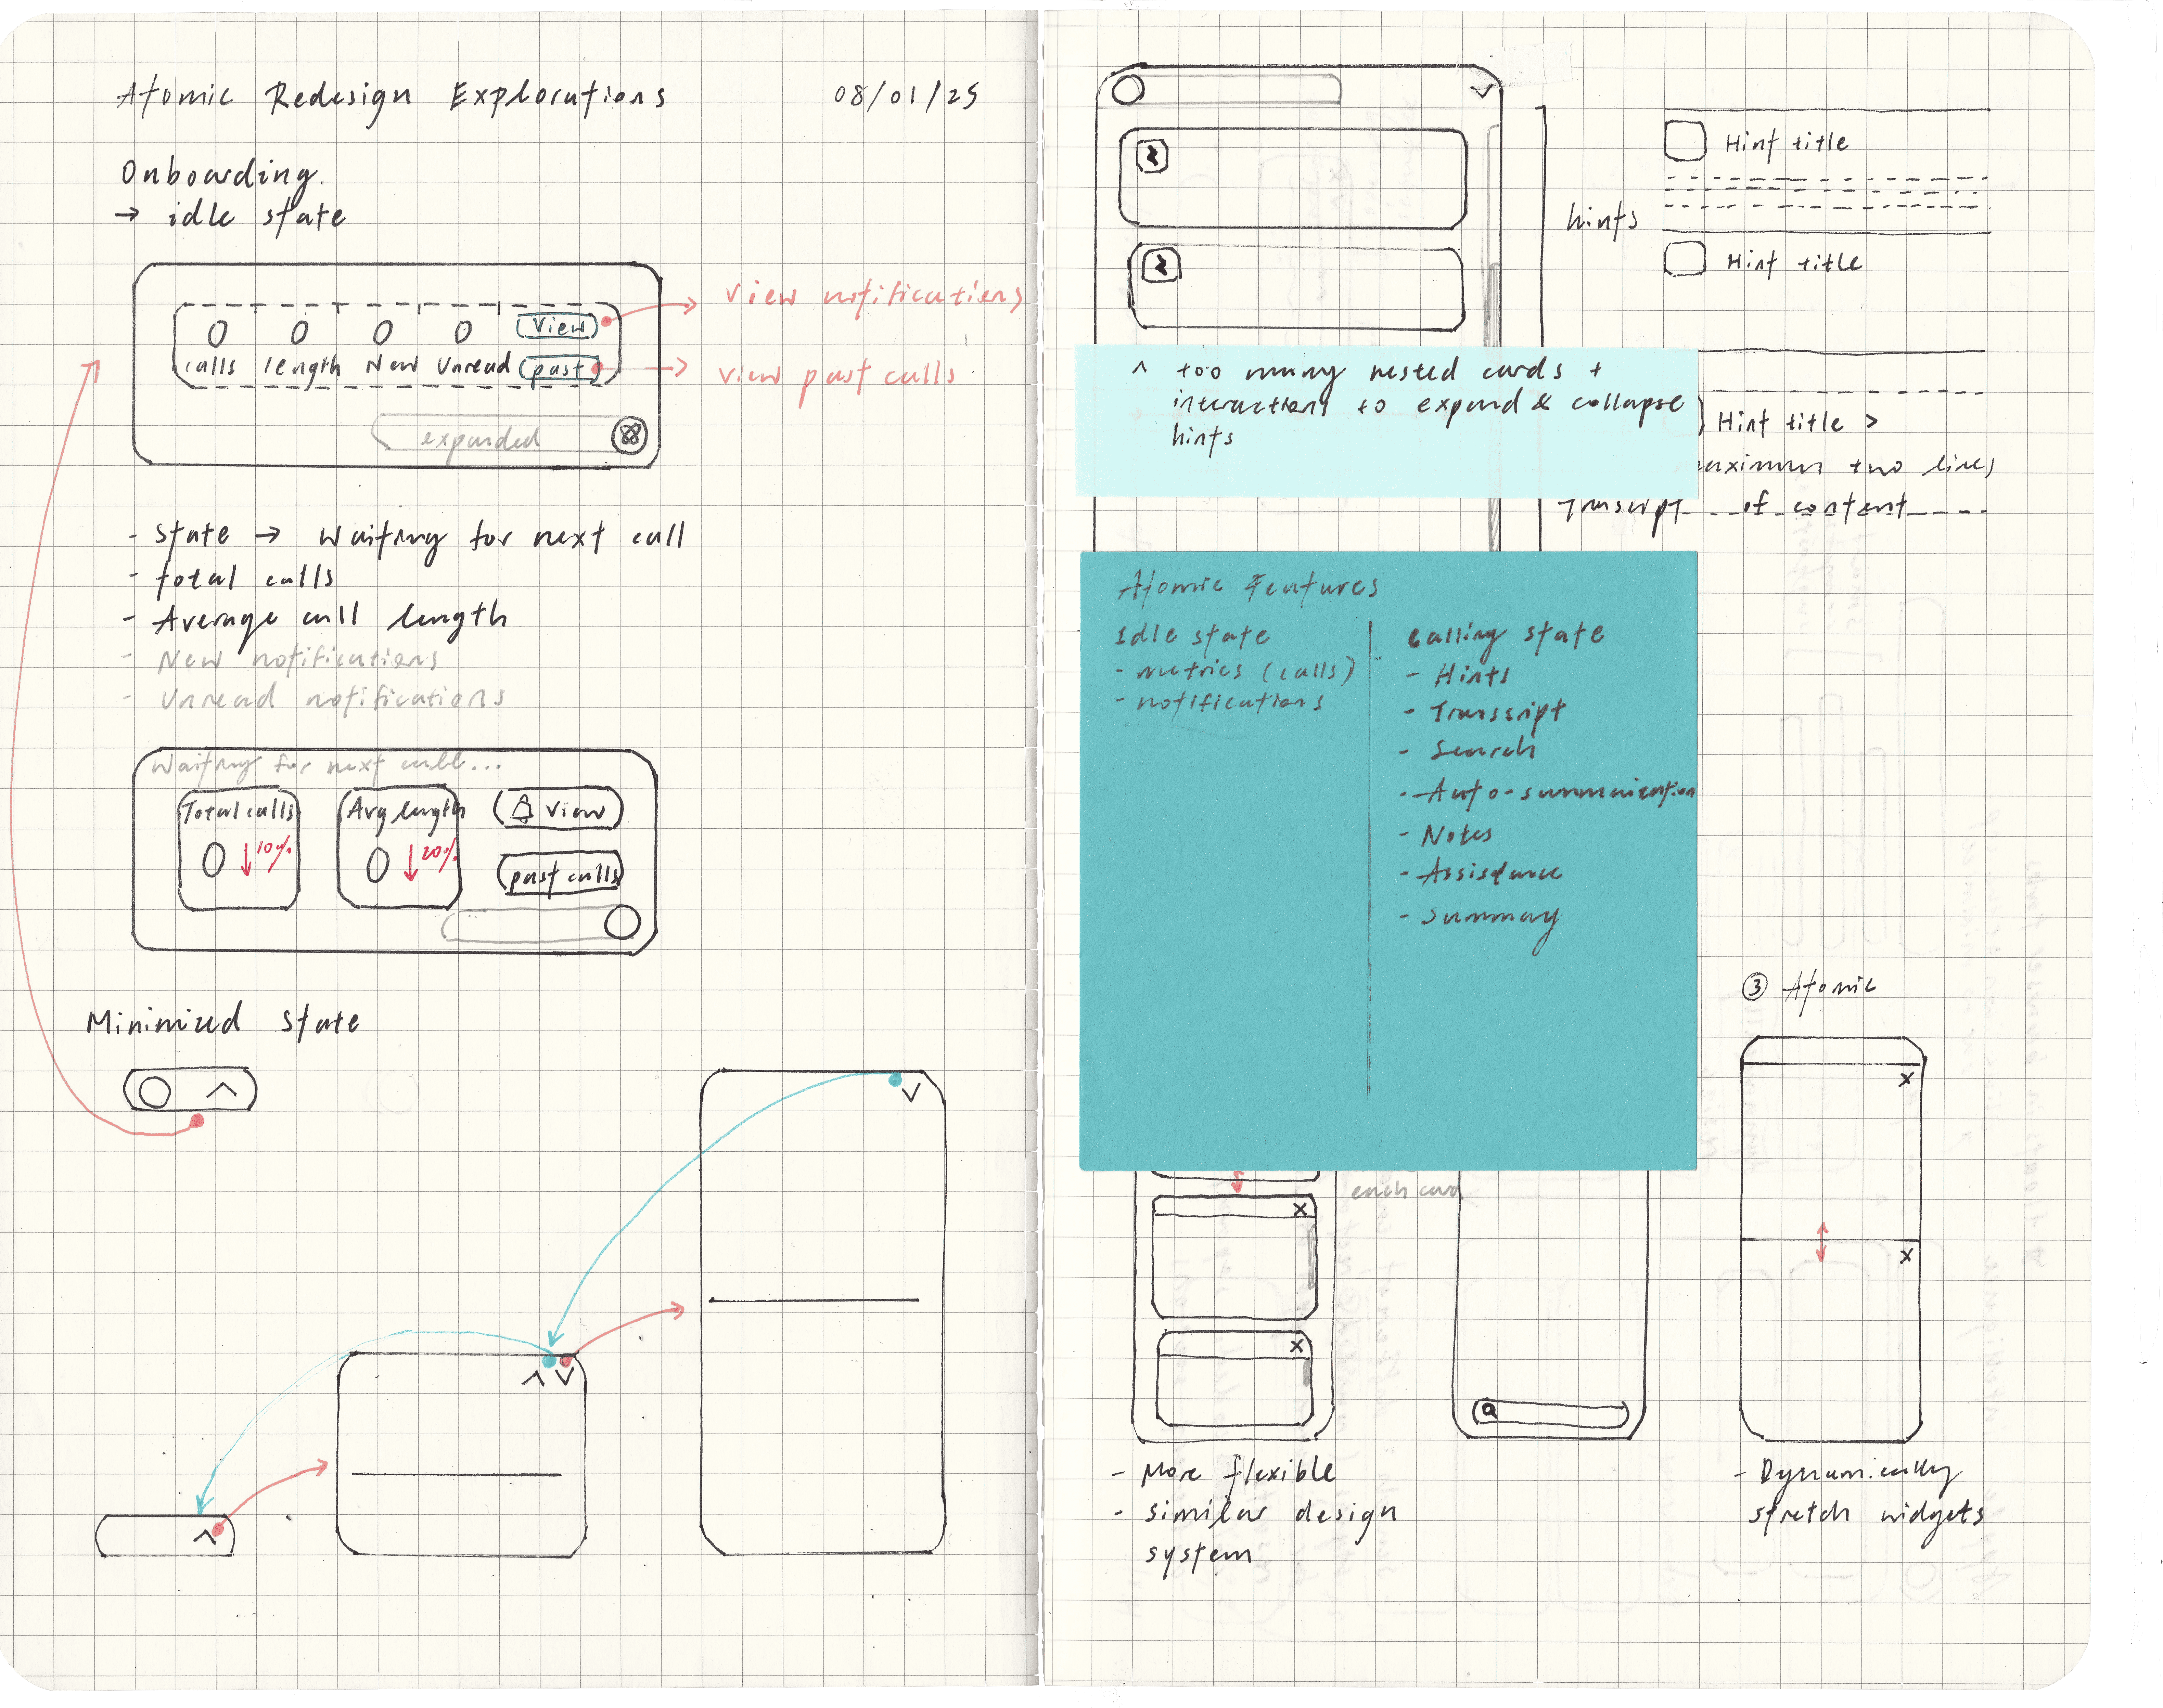 Atomic Redesign Explorations 08/01/25
Onboarding.
→ idle state
0 0 0 0 View
calls length New Unread past
expanded
view notifications
view past calls
- State → Waiting for next call
- total calls
- Average call length
- New notifications
- Unread notifications
Waiting for next call...
Total calls
0 ↓ 10%
Avg length
0 ↓ 20%
View
past calls
Minimized State
Hint title
hints
Hint title
^ too many nested cards +
interactions to expand & collapse
hints
Hint title >
maximum two lines
Transcript of content
Atomic Features
Idle state
- metrics (calls)
- notifications
Calling state
- Hints
- Transcript
- Search
- Auto-summarization
- Notes
- Assistance
- Summary
each card
- More flexible
- similar design
system
③ Atomic
- Dynamically
stretch widgets